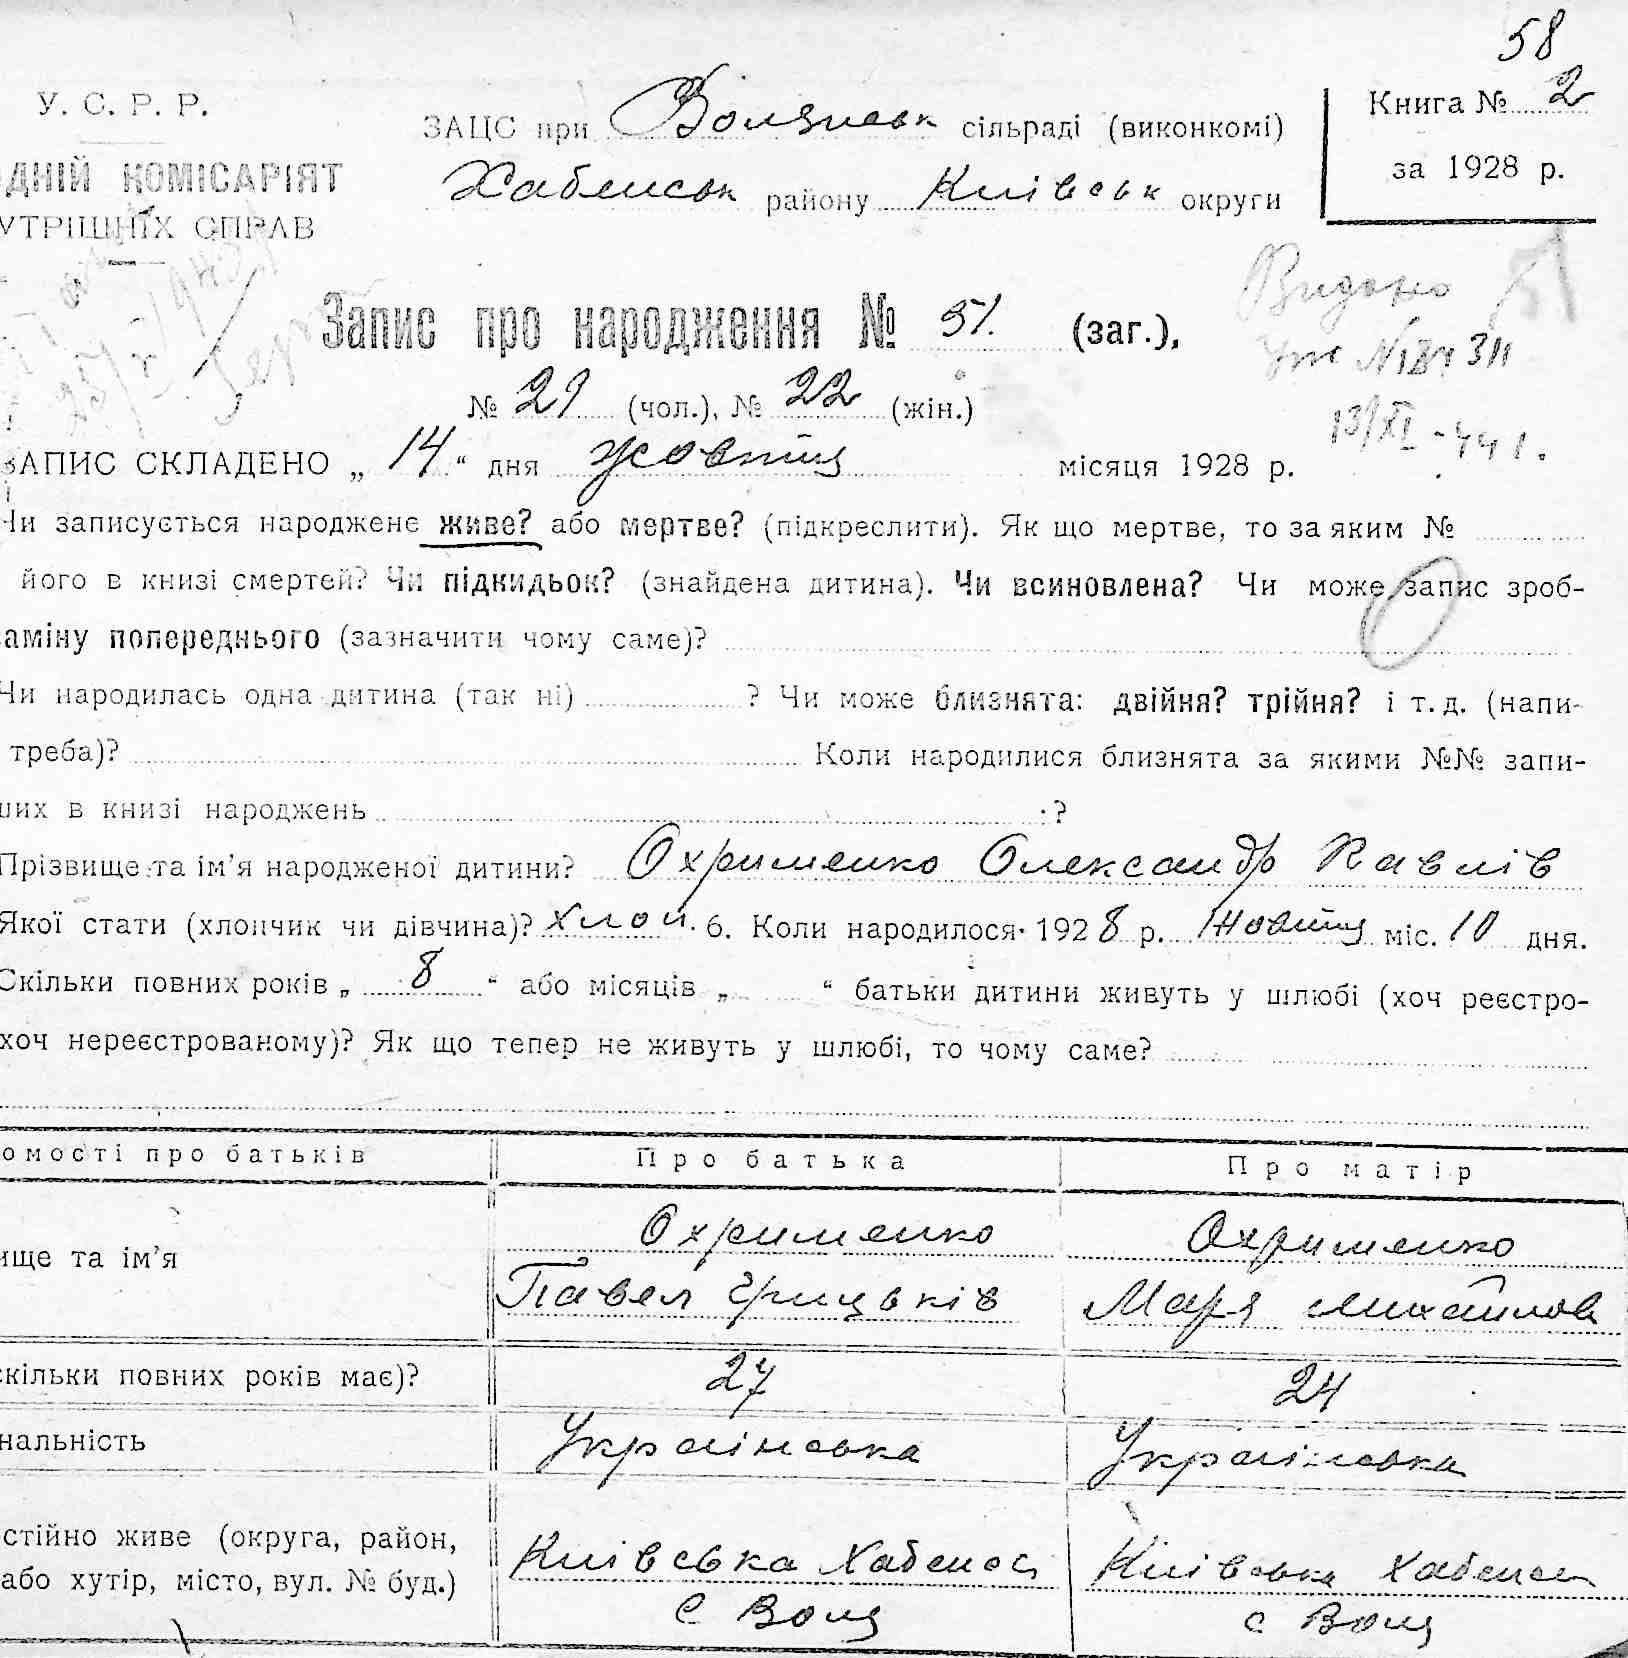 58
У. С. Р. Р.
ОДНІЙ КОМІСАРІЯТ
УТРІШНІХ СПРАВ
ЗАЦС при сільраді (виконкомі)
району Київськ округи
Книга № 2
за 1928 р.
Видано
13/XI - 44 г.
Запис про народження № 51. (заг.),
№ 29 (чол.), № 22 (жін.)
ЗАПИС СКЛАДЕНО „ 14 “ дня жовтня місяця 1928 р.
Чи записується народжене живе? або мертве? (підкреслити). Як що мертве, то за яким №
його в книзі смертей? Чи підкидьок? (знайдена дитина). Чи всиновлена? Чи може запис зроб-
аміну попереднього (зазначити чому саме)?
Чи народилась одна дитина (так ні) ? Чи може близнята: двійня? трійня? і т. д. (напи-
треба)? Коли народилися близнята за якими №№ запи-
ших в книзі народжень ?
Прізвище та ім’я народженої дитини? Охрименко Олександр Павлів
Якої стати (хлопчик чи дівчина)? хлоп. 6. Коли народилося 1928 р. жовтня міс. 10 дня.
Скільки повних років „ 8 “ або місяців „ “ батьки дитини живуть у шлюбі (хоч реєстро-
хоч нереєстрованому)? Як що тепер не живуть у шлюбі, то чому саме?
омості про батьків Про батька Про матір
ище та ім’я
Охрименко Охрименко
Павел Грицьків Маря Михайлова
скільки повних років має)? 27 24
нальність Українська Українська
стійно живе (округа, район,
або хутір, місто, вул. № буд.)
Київська Київська
с Воля с Воля